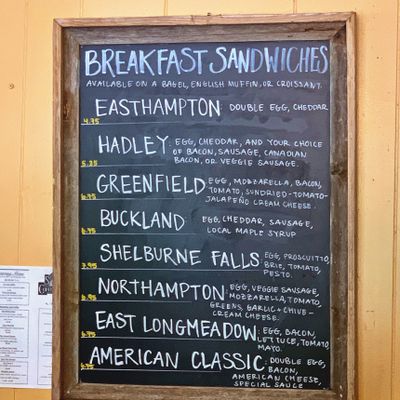 BREAKFAST SANDWICHES
AVAILABLE ON A BAGEL, ENGLISH MUFFIN, OR CROISSANT.
EASTHAMPTON: DOUBLE EGG, CHEDDAR
4.75
HADLEY: EGG, CHEDDAR, AND YOUR CHOICE
OF BACON, SAUSAGE, CANADIAN
BACON, OR VEGGIE SAUSAGE.
5.25
GREENFIELD: EGG, MOZZARELLA, BACON,
TOMATO, SUNDRIED-TOMATO-
JALAPEÑO CREAM CHEESE.
6.75
BUCKLAND EGG, CHEDDAR, SAUSAGE,
LOCAL MAPLE SYRUP
6.75
SHELBURNE FALLS EGG, PROSCUITTO,
BRIE, TOMATO,
PESTO.
7.95
NORTHAMPTON: EGG, VEGGIE SAUSAGE,
MOZZARELLA, TOMATO,
GREENS, GARLIC + CHIVE-
CREAM CHEESE.
6.95
EAST LONGMEADOW: EGG, BACON,
LETTUCE, TOMATO,
MAYO.
6.75
AMERICAN CLASSIC: DOUBLE EGG,
BACON,
AMERICAN CHEESE,
SPECIAL SAUCE
6.75